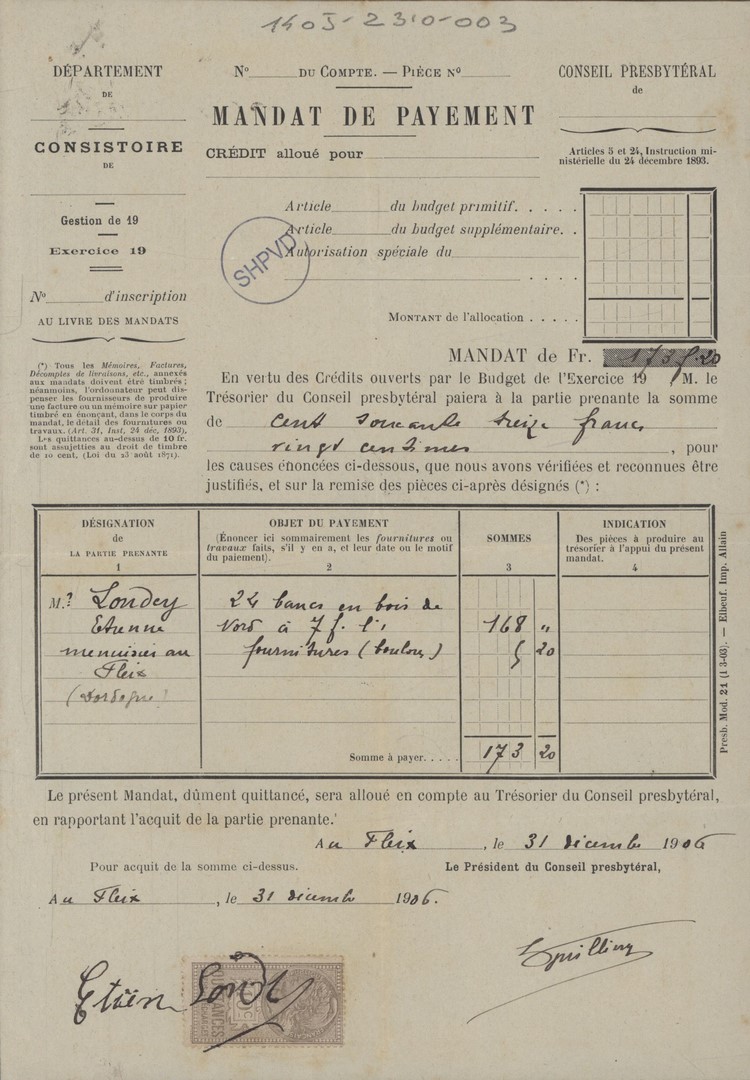 1405-2310-003
DÉPARTEMENT
DE
CONSISTOIRE
DE
Gestion de 19
Exercice 19
No d'inscription
AU LIVRE DES MANDATS
(*) Tous les Mémoires, Factures,
Décomptes de livraisons, etc., annexés
aux mandats doivent être timbrés ;
néanmoins, l'ordonnateur peut dis-
penser les fournisseurs de produire
une facture ou un mémoire sur papier
timbré en énonçant, dans le corps du
mandat, le détail des fournitures ou
travaux. (Art. 31, Inst. 24 déc. 1893).
Les quittances au-dessus de 10 fr.
sont assujetties au droit de timbre
de 10 cent. (Loi du 23 août 1871).
No DU COMPTE. — PIÈCE No
MANDAT DE PAYEMENT
CRÉDIT alloué pour
CONSEIL PRESBYTÉRAL
de
Articles 5 et 24, Instruction mi-
nistérielle du 24 décembre 1893.
Article du budget primitif. . . . .
Article du budget supplémentaire. .
Autorisation spéciale du
SHPVD
MONTANT de l'allocation . . . . .
MANDAT de Fr. 173 f. 20
En vertu des Crédits ouverts par le Budget de l'Exercice 19 M. le
Trésorier du Conseil presbytéral paiera à la partie prenante la somme
de cent soixante treize francs
vingt centimes , pour
les causes énoncées ci-dessous, que nous avons vérifiées et reconnues être
justifiés, et sur la remise des pièces ci-après désignés (*) :
DÉSIGNATION
de
LA PARTIE PRENANTE
1
OBJET DU PAYEMENT
(Énoncer ici sommairement les fournitures ou
travaux faits, s'il y en a, et leur date ou le motif
du paiement).
2
SOMMES
3
INDICATION
Des pièces à produire au
trésorier à l'appui du présent
mandat.
4
M. Londey 24 bancs en bois de
Etienne Nord à 7 f. l'1 168 "
menuisier au fournitures (boulons) 5 20
Fleix
(Dordogne)
Somme à payer. . . . . 173 20
Presb. Mod. 21 (1 3-03). — Elbeuf. Imp. Allain
Le présent Mandat, dûment quittancé, sera alloué en compte au Trésorier du Conseil presbytéral,
en rapportant l'acquit de la partie prenante.
Au Fleix , le 31 décembre 1906
Pour acquit de la somme ci-dessus.
Le Président du Conseil presbytéral,
Au Fleix , le 31 décembre 1906.
QUITTANCES